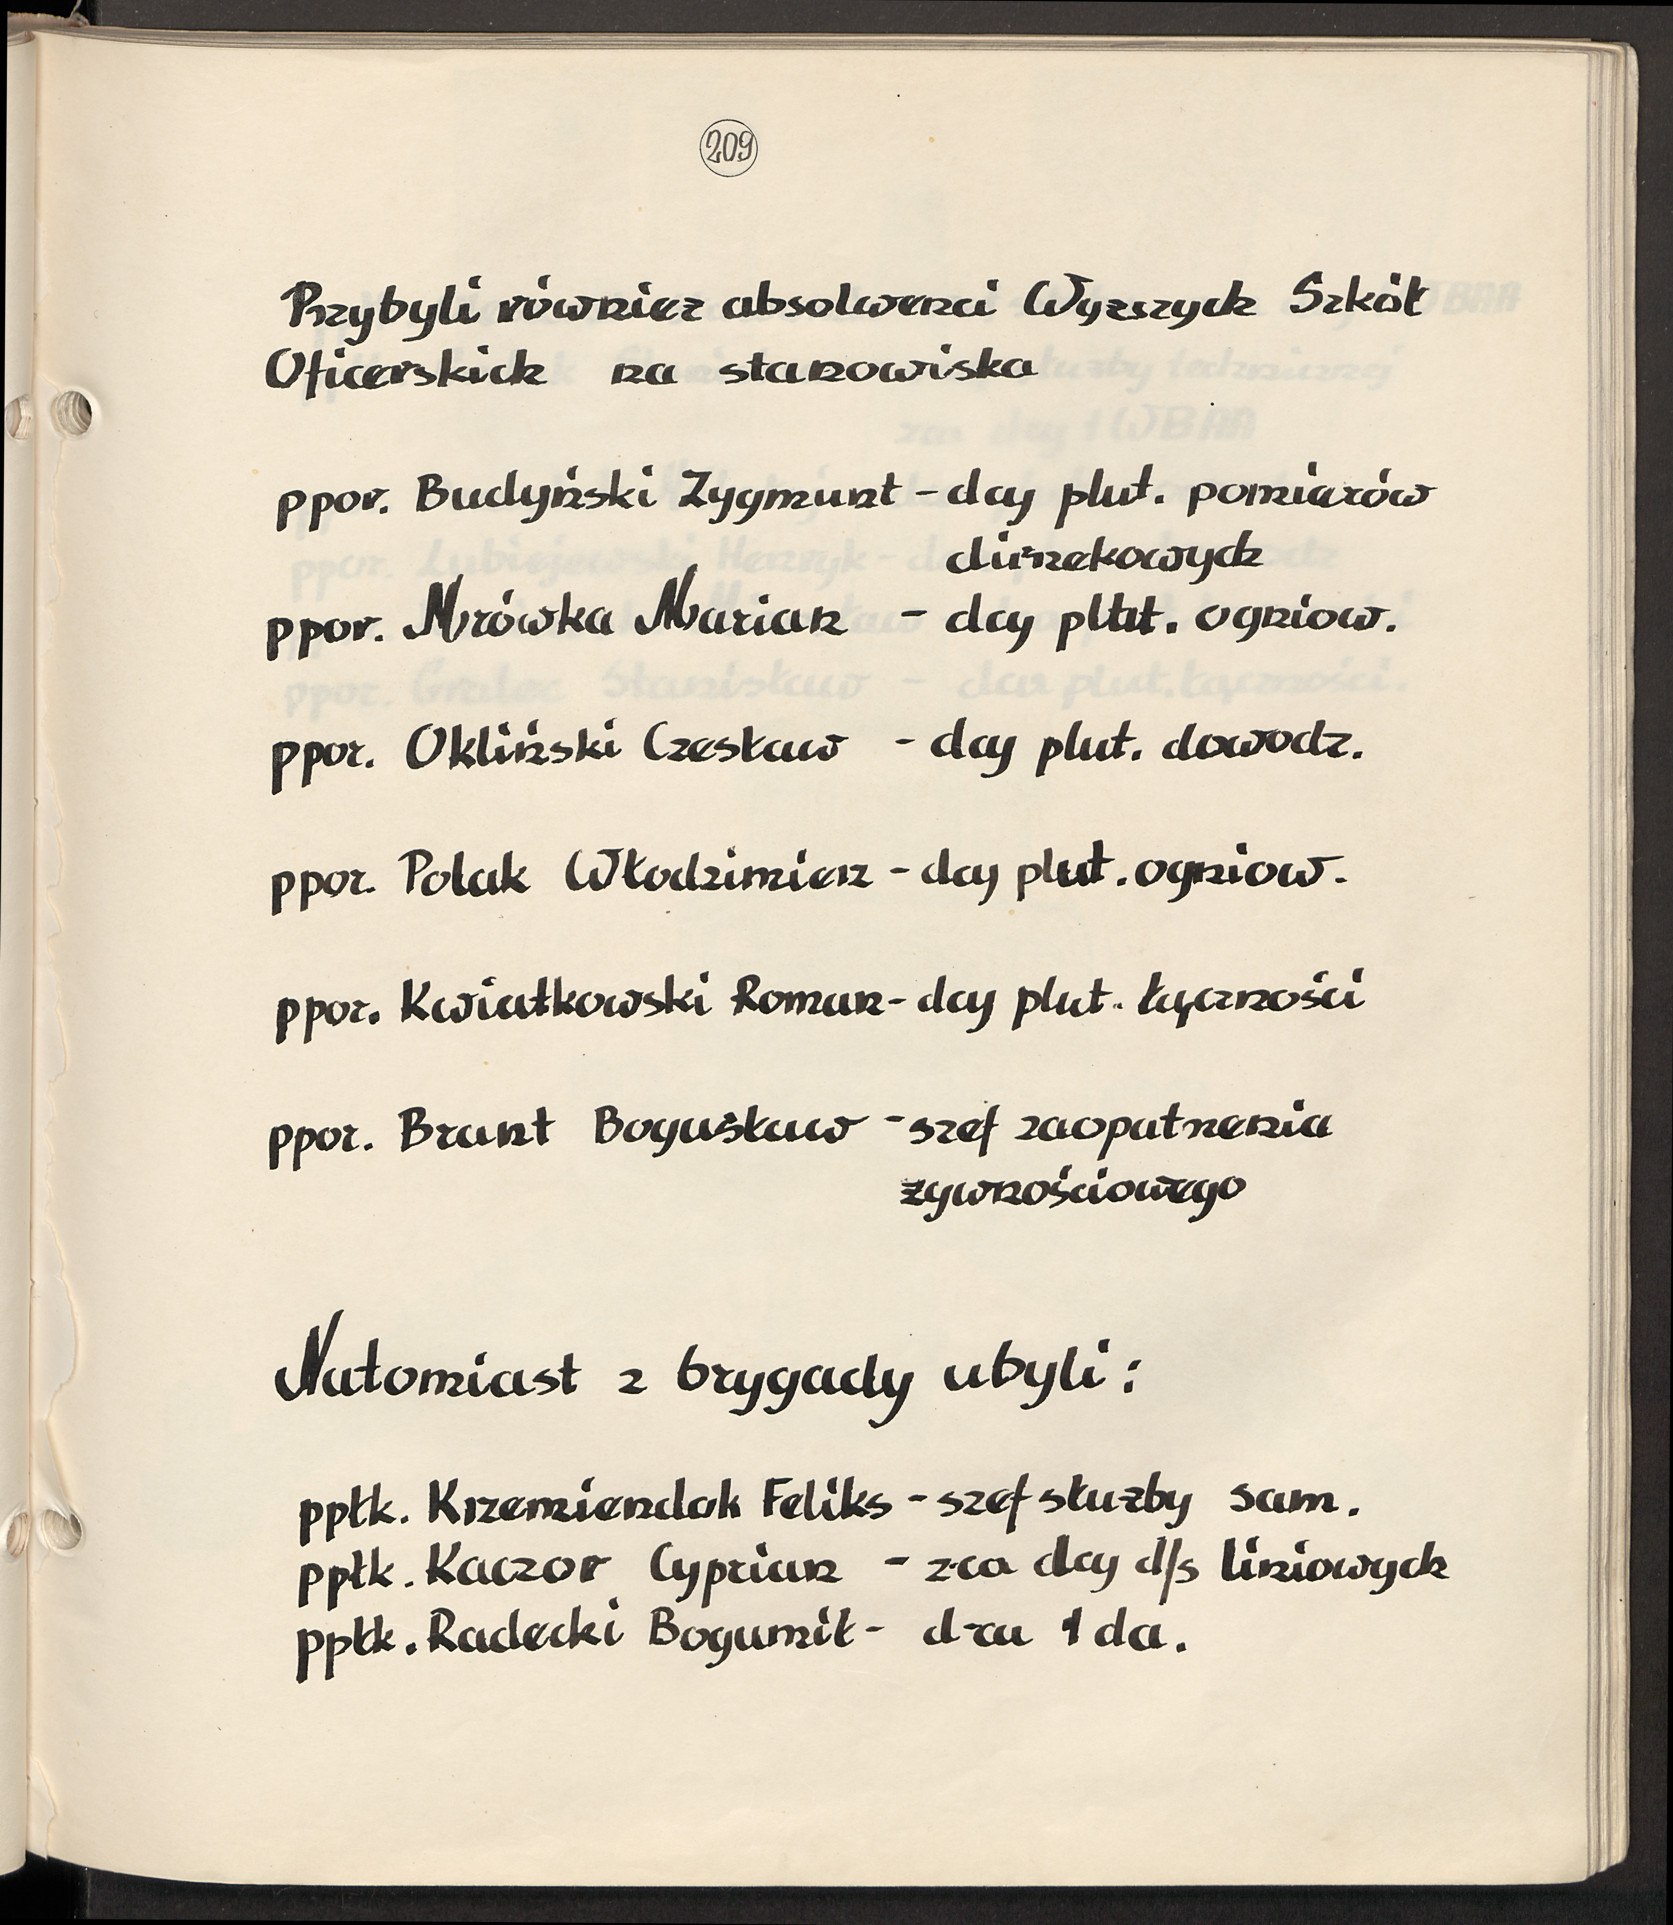 209
Przybyli również absolwenci Wyższych Szkół
Oficerskich na stanowiska
ppor. Budyński Zygmunt - dcy plut. pomiarów
dźwiękowych
ppor. Mrówka Marian - dcy plut. ogniow.
ppor. Okliński Czesław - dcy plut. dowodz.
ppor. Polak Włodzimierz - dcy plut. ogniow.
ppor. Kwiatkowski Roman - dcy plut. łączności
ppor. Brant Bogusław - szef zaopatrzenia
żywnościowego
Natomiast z brygady ubyli:
ppłk. Krzemiendak Feliks - szef służby sam.
ppłk. Kaczor Cyprian - z-ca dcy d/s liniowych
ppłk. Radecki Bogumił - d-ca 1 da.